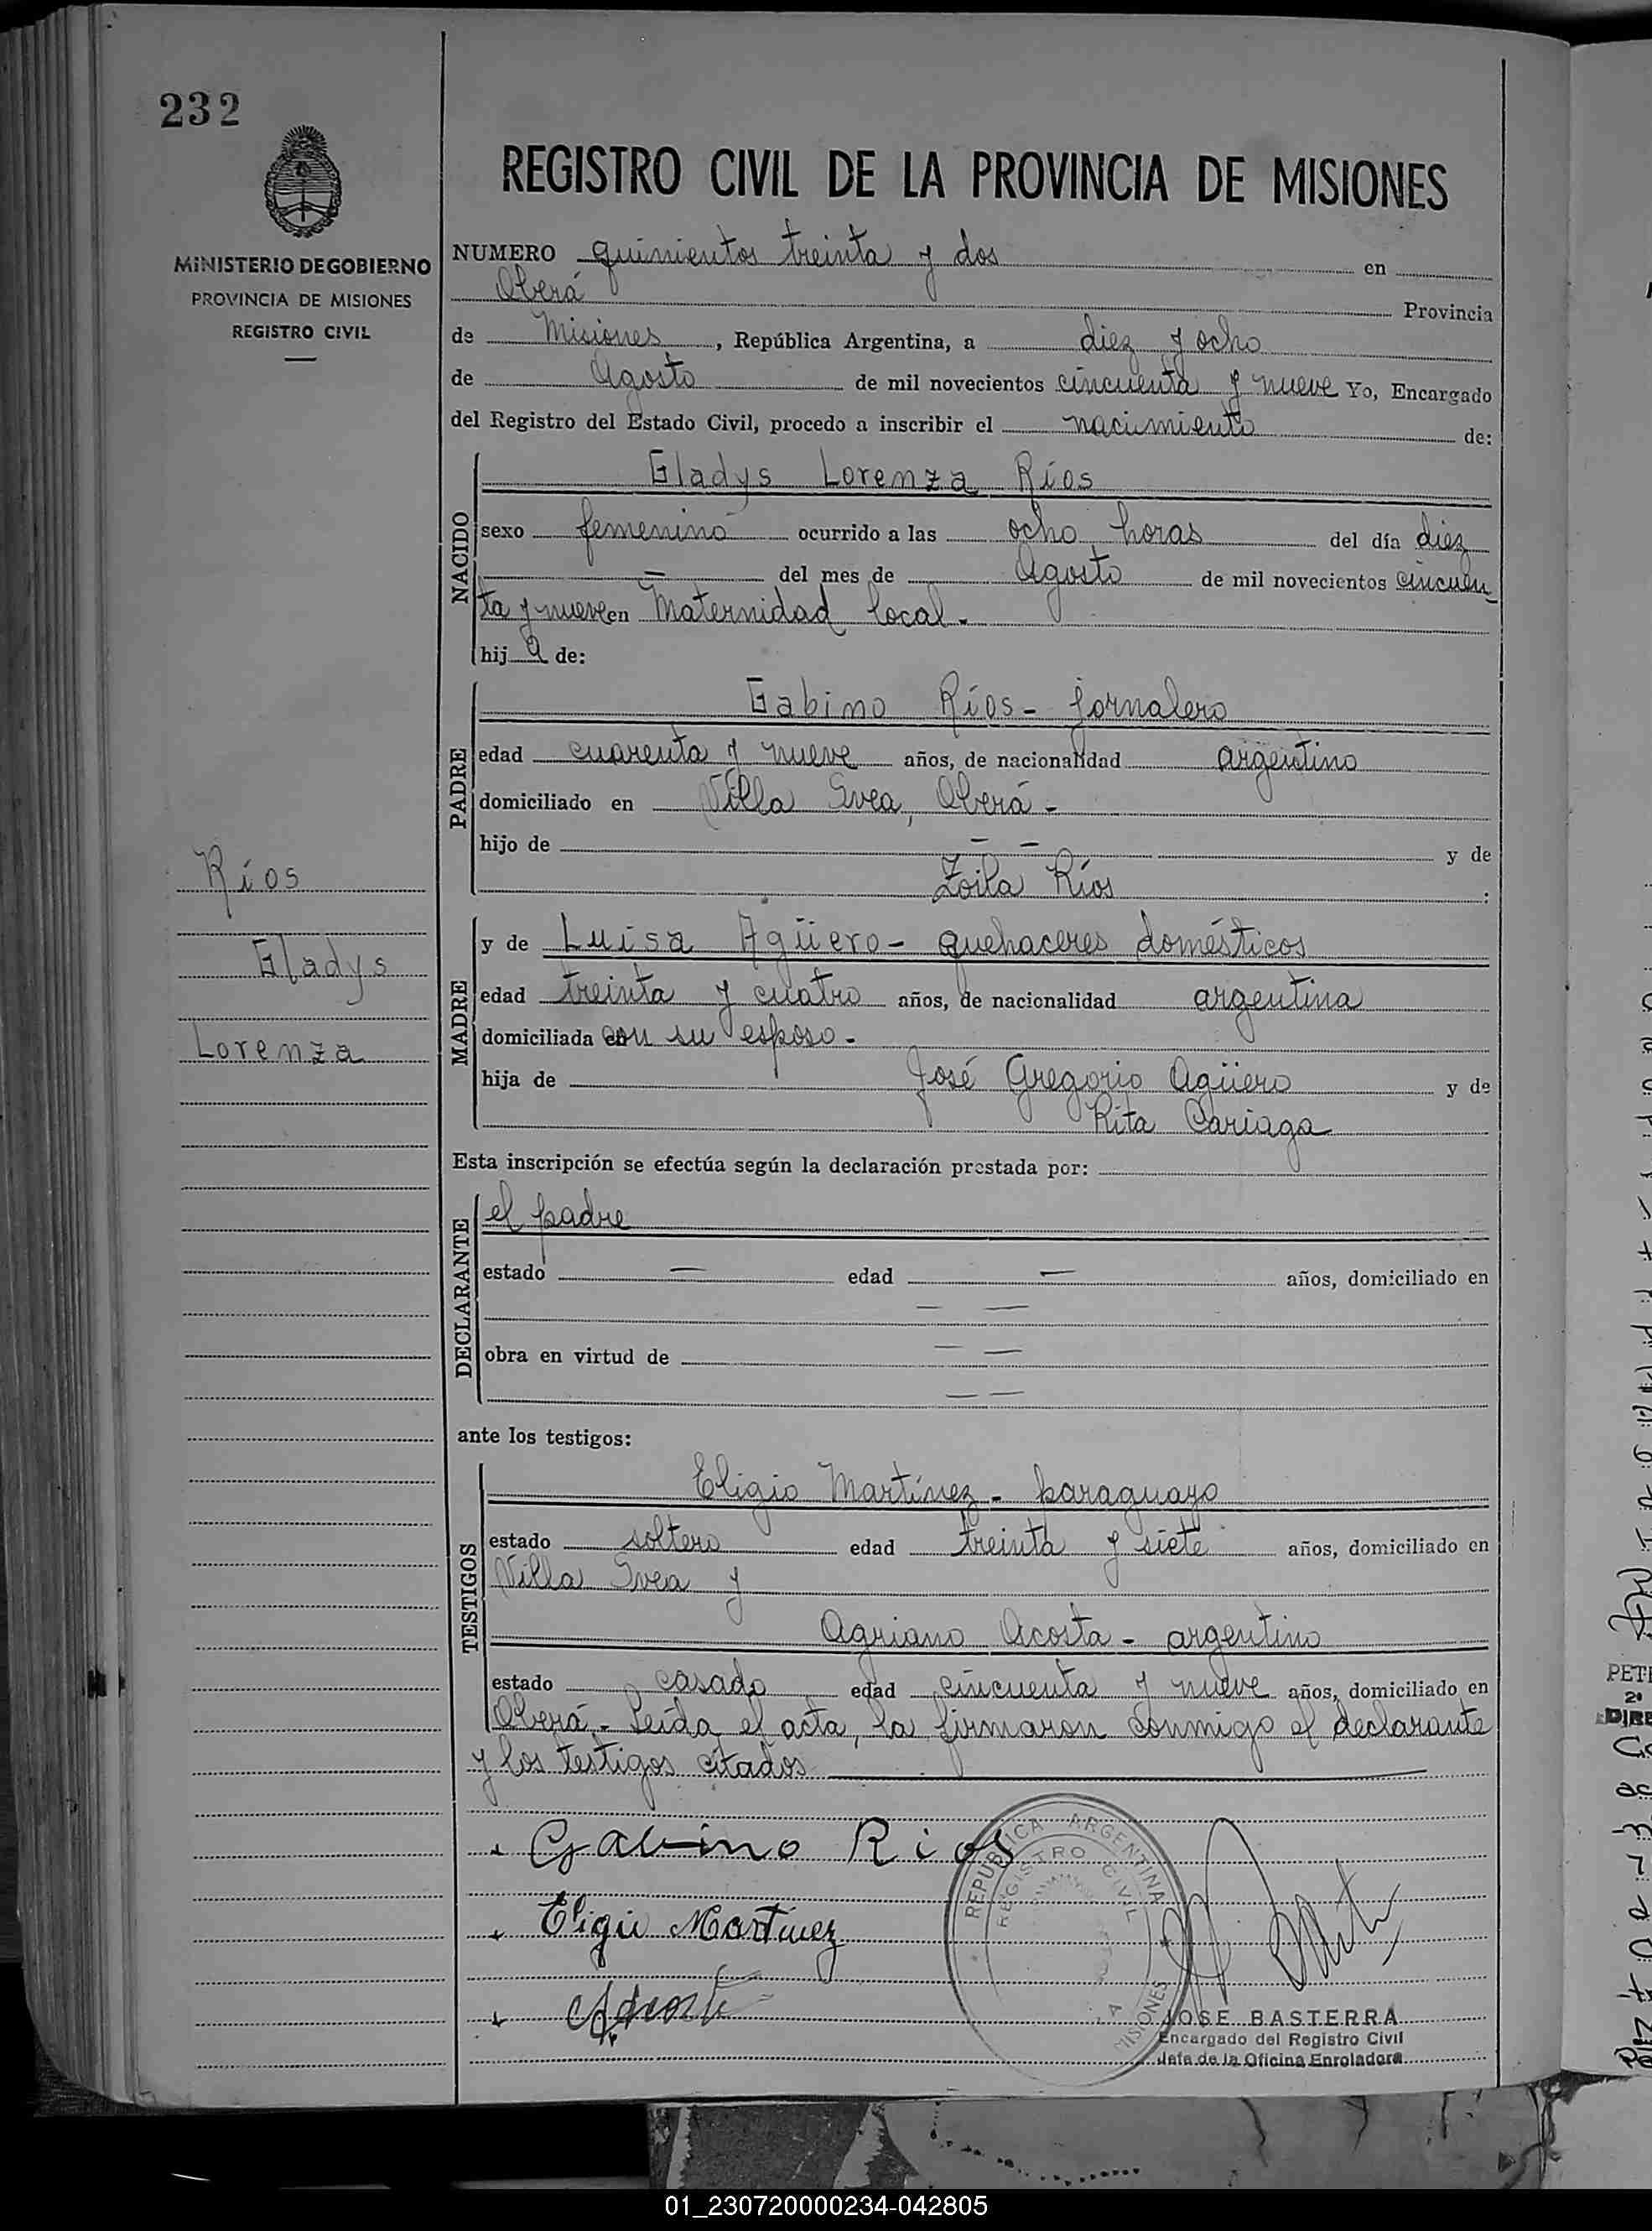 232
MINISTERIO DE GOBIERNO
PROVINCIA DE MISIONES
REGISTRO CIVIL
REGISTRO CIVIL DE LA PROVINCIA DE MISIONES
NUMERO quinientos treinta y dos en
Oberá Provincia
de Misiones, República Argentina, a diez y ocho
de Agosto de mil novecientos cincuenta y nueve Yo, Encargado
del Registro del Estado Civil, procedo a inscribir el nacimiento de:
NACIDO
Gladys Lorenza Ríos
sexo femenino ocurrido a las ocho horas del día diez
— del mes de Agosto de mil novecientos cincuen
ta y nueve en Maternidad local.-
hija de:
PADRE
Gabino Ríos - jornalero
edad cuarenta y nueve años, de nacionalidad argentino
domiciliado en Villa Svea, Oberá -
hijo de — — y de
Zoila Ríos :
Ríos
Gladys
Lorenza
MADRE
y de Luisa Agüero - quehaceres domésticos
edad treinta y cuatro años, de nacionalidad argentina
domiciliada con su esposo.-
hija de José Gregorio Agüero y de
Rita Cariaga
Esta inscripción se efectúa según la declaración prestada por:
DECLARANTE
el padre
estado — edad — años, domiciliado en
— —
obra en virtud de — —
— —
ante los testigos:
TESTIGOS
Eligio Martínez - paraguayo
estado soltero edad treinta y siete años, domiciliado en
Villa Svea y
Agriano Acosta - argentino
estado casado edad cincuenta y nueve años, domiciliado en
Oberá.- Leída el acta, la firmaron conmigo el declarante
y los testigos citados
Gavino Rios
Eligio Martinez
REPUBLICA ARGENTINA
REGISTRO CIVIL
MISIONES
JOSE BASTERRA
Encargado del Registro Civil
Jefe de la Oficina Enroladora
01_230720000234-042805